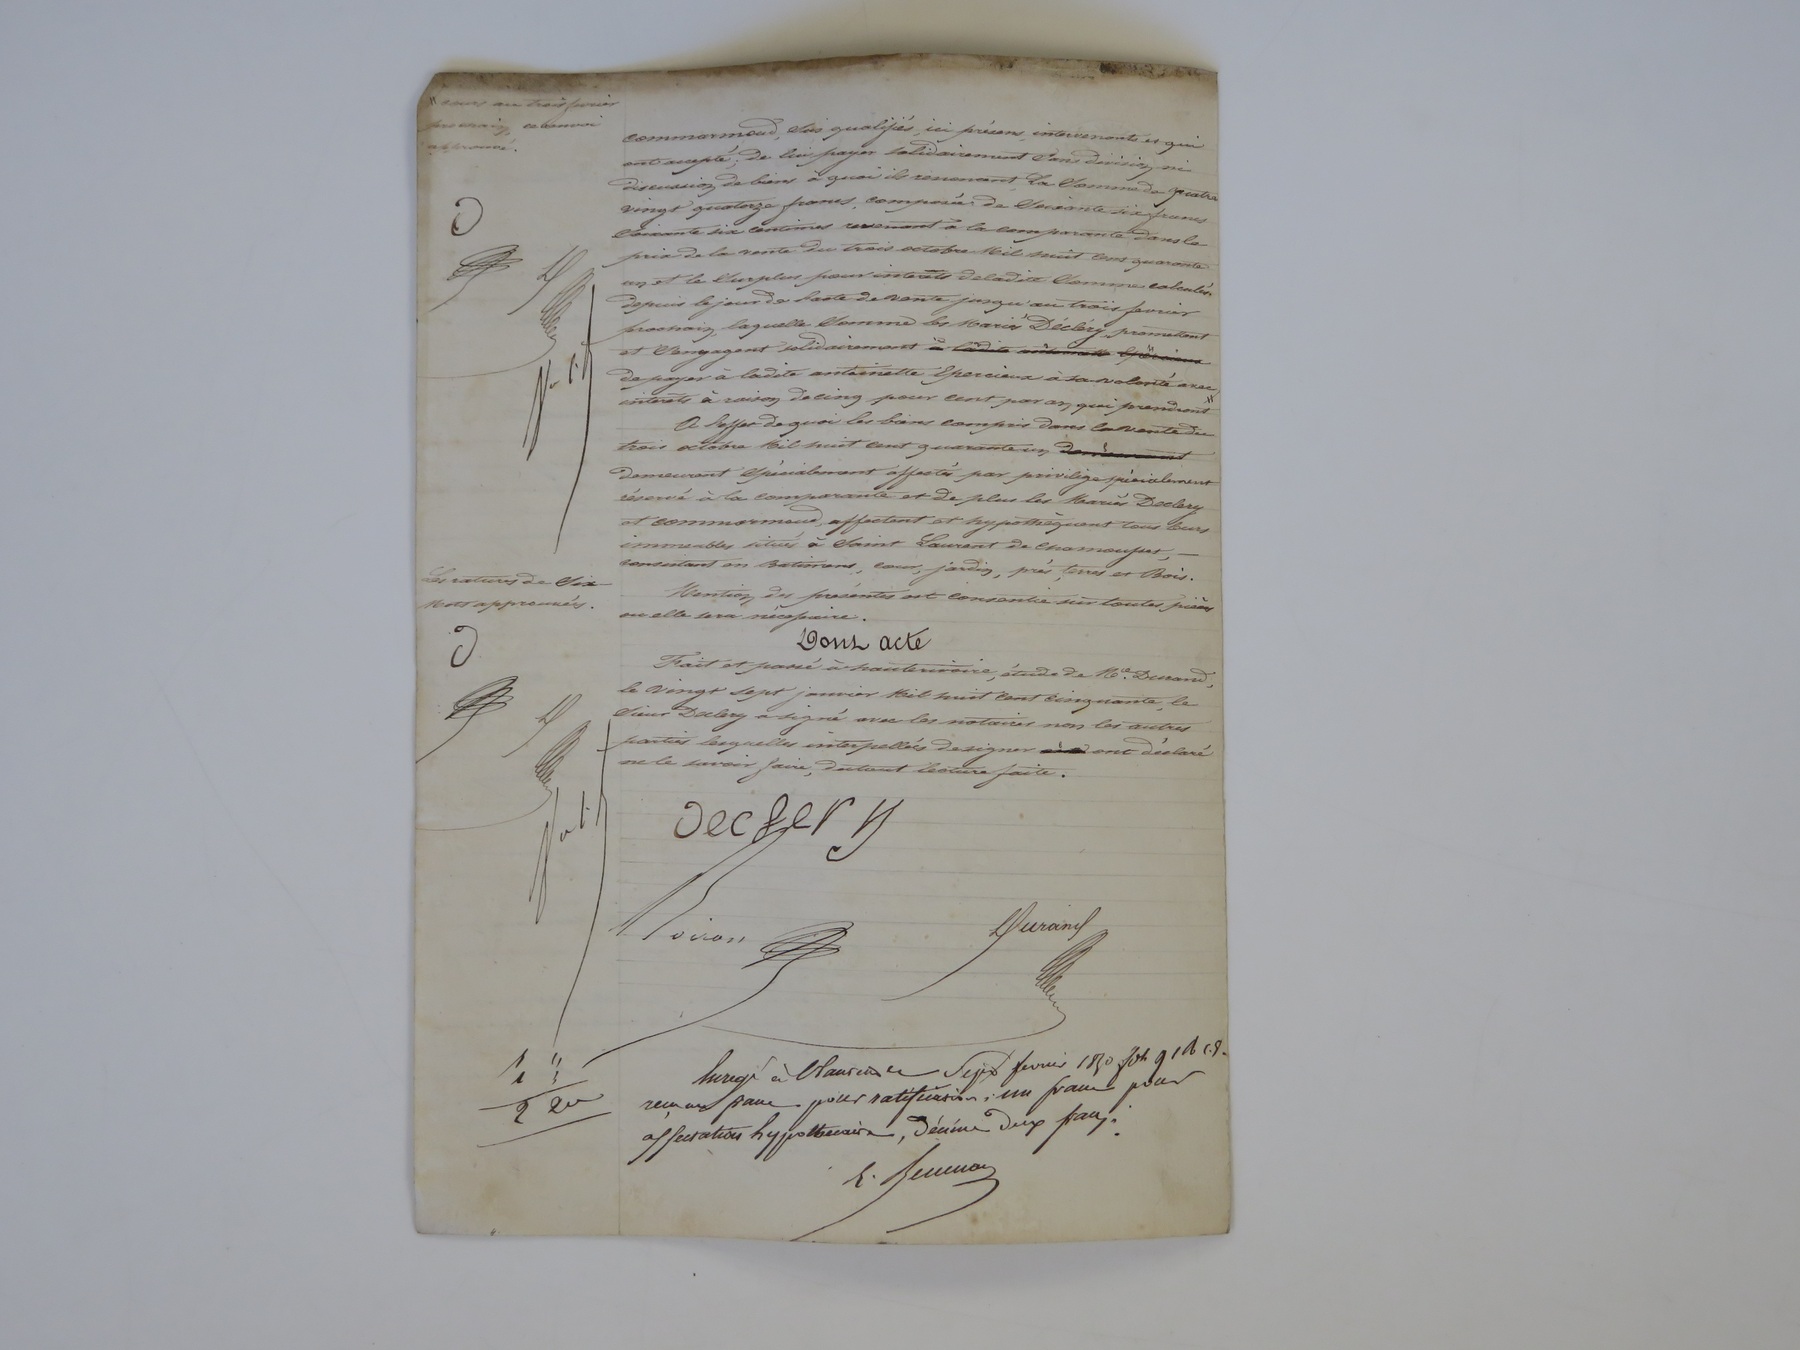 " cours au trois fevrier
prochain, ce renvoi
approuvé.
Commarmond, Sus qualifiés, ici présens, intervenants et qui
ont accepté, de lui payer solidairement Sans division ni
discussion de biens à quoi ils renoncent, La Somme de quatre
vingt quatorze francs, composée de Soixante six francs
Soixante six centimes revenant à la comparante dans le
prix de la vente du trois octobre Mil huit cent quarante
un et le Surplus pour intérêts de ladite Somme calculés
depuis le jour de l'acte de vente jusqu'au trois fevrier
prochain, laquelle Somme les Mariés Décléry promettent
et S'engagent solidairement à ladite antoinette Epercieux
de payer à ladite antoinette Epercieux à sa volonté avec
intérêts à raison de cinq pour cent par an, qui prendront "
A l'effet de quoi les biens compris dans la vente du
trois octobre Mil huit cent quarante un
demeurent Spécialement affectés par privilège spécialement
réservé à la comparante et de plus les Mariés Declery
et commarmond, affectent et hypothèquent tous leurs
immeubles situés à Saint Laurent de Chamousset, —
consistant en Batimens, cour, jardin, prés, terres et Bois.
Les ratures de Six
Mots approuvées.
Mention des présentes est consentie sur toutes pièces
ou elle sera nécessaire.
Dont acte
Fait et passé à hauterivoire, étude de Me. Durand,
le Vingt Sept janvier Mil huit cent cinquante, le
Sieur Declery a signé avec les notaires non les autres
parties lesquelles interpellées de signer ont déclaré
ne le savoir faire, dutout lecture faite.
Declery
Durand
février 1850 fo
reçu un franc pour ratification, un franc pour
affectation hypothécaire, Décime
2 20